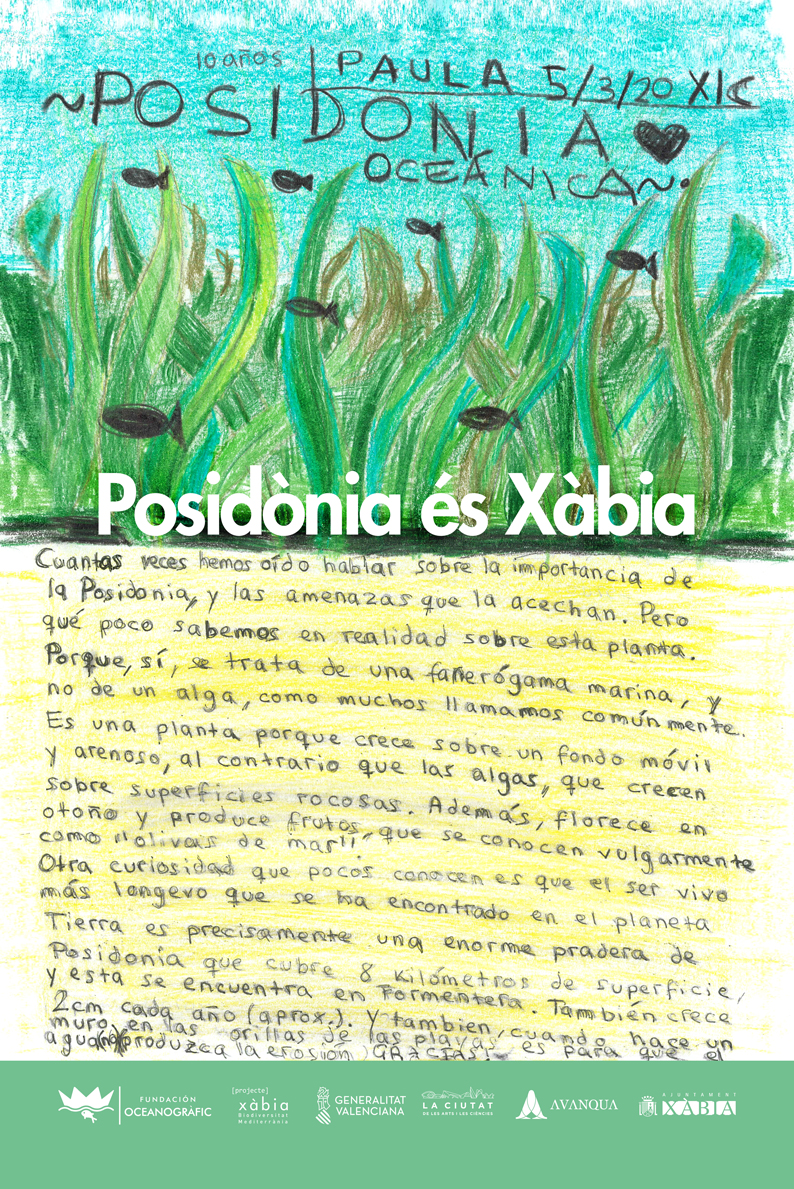 10 años
PAULA 5/3/20 XIC
~POSIDONIA
OCEÁNICA~.
Posidònia és Xàbia
Cuantas veces hemos oído hablar sobre la importancia de
la Posidonia, y las amenazas que la acechan. Pero
qué poco sabemos en realidad sobre esta planta.
Porque, sí, se trata de una fanerógama marina, y
no de un alga, como muchos llamamos comúnmente.
Es una planta porque crece sobre un fondo móvil
y arenoso, al contrario que las algas, que crecen
sobre superficies rocosas. Además, florece en
otoño y produce frutos, que se conocen vulgarmente
como "olivas de mar".
Otra curiosidad que pocos conocen es que el ser vivo
más longevo que se ha encontrado en el planeta
Tierra es precisamente una enorme pradera de
Posidonia que cubre 8 kilómetros de superficie,
y esta se encuentra en Formentera. También crece
2cm cada año (aprox.). Y tambien, cuando hace un
muro en las orillas de las playas es para que el
agua (no) produzca la erosión ¡GRACIAS!
FUNDACIÓN
OCEANOGRÀFIC
[projecte]
xàbia
Biodiversitat
Mediterrània
GENERALITAT
VALENCIANA
LA CIUTAT
DE LES ARTS I LES CIÈNCIES
AVANQUA
AJUNTAMENT
XÀBIA